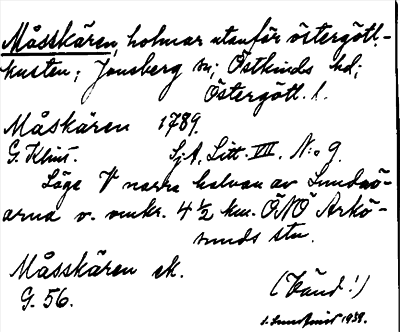 Måsskären, holmar utanför östergötl.-
kusten; Jonsberg sn; Östkinds hd;
Östergötl. l.
Måskären 1789.
G. Klint. SjA. Litt. VIII. N:o 9.
Läge V norra halvan av Lundaö-
arna v. omkr. 4 ½ km. ONO Arkö-
sunds stn.
Måsskären ek.
G. 56.
(Vänd!)
S. Lundqvist 1938.